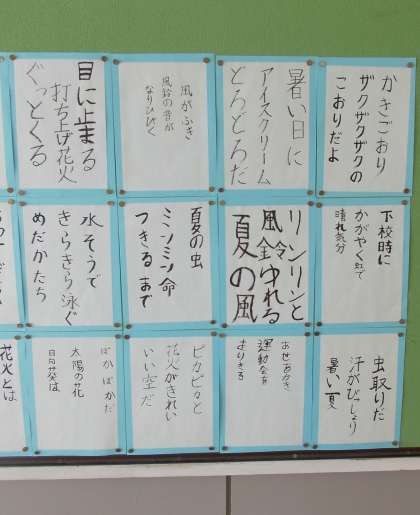 かきごおり
ザクザクザクの
こおりだよ
暑い日に
アイスクリーム
どろどろだ
風がふき
風鈴の音が
なりひびく
目に止まる
打ち上げ花火
ぐっとくる
下校時に
かがやく虹で
晴れ気分
リンリンと
風鈴ゆれる
夏の風
夏の虫
ミンミン命
つきるまで
水そうで
きらきら泳ぐ
めだかたち
虫取りだ
汗がびっしょり
暑い夏
あせかき
運動会を
ピカピカと
花火がきれい
いい空だ
ぽかぽかだ
太陽の花
花火とは